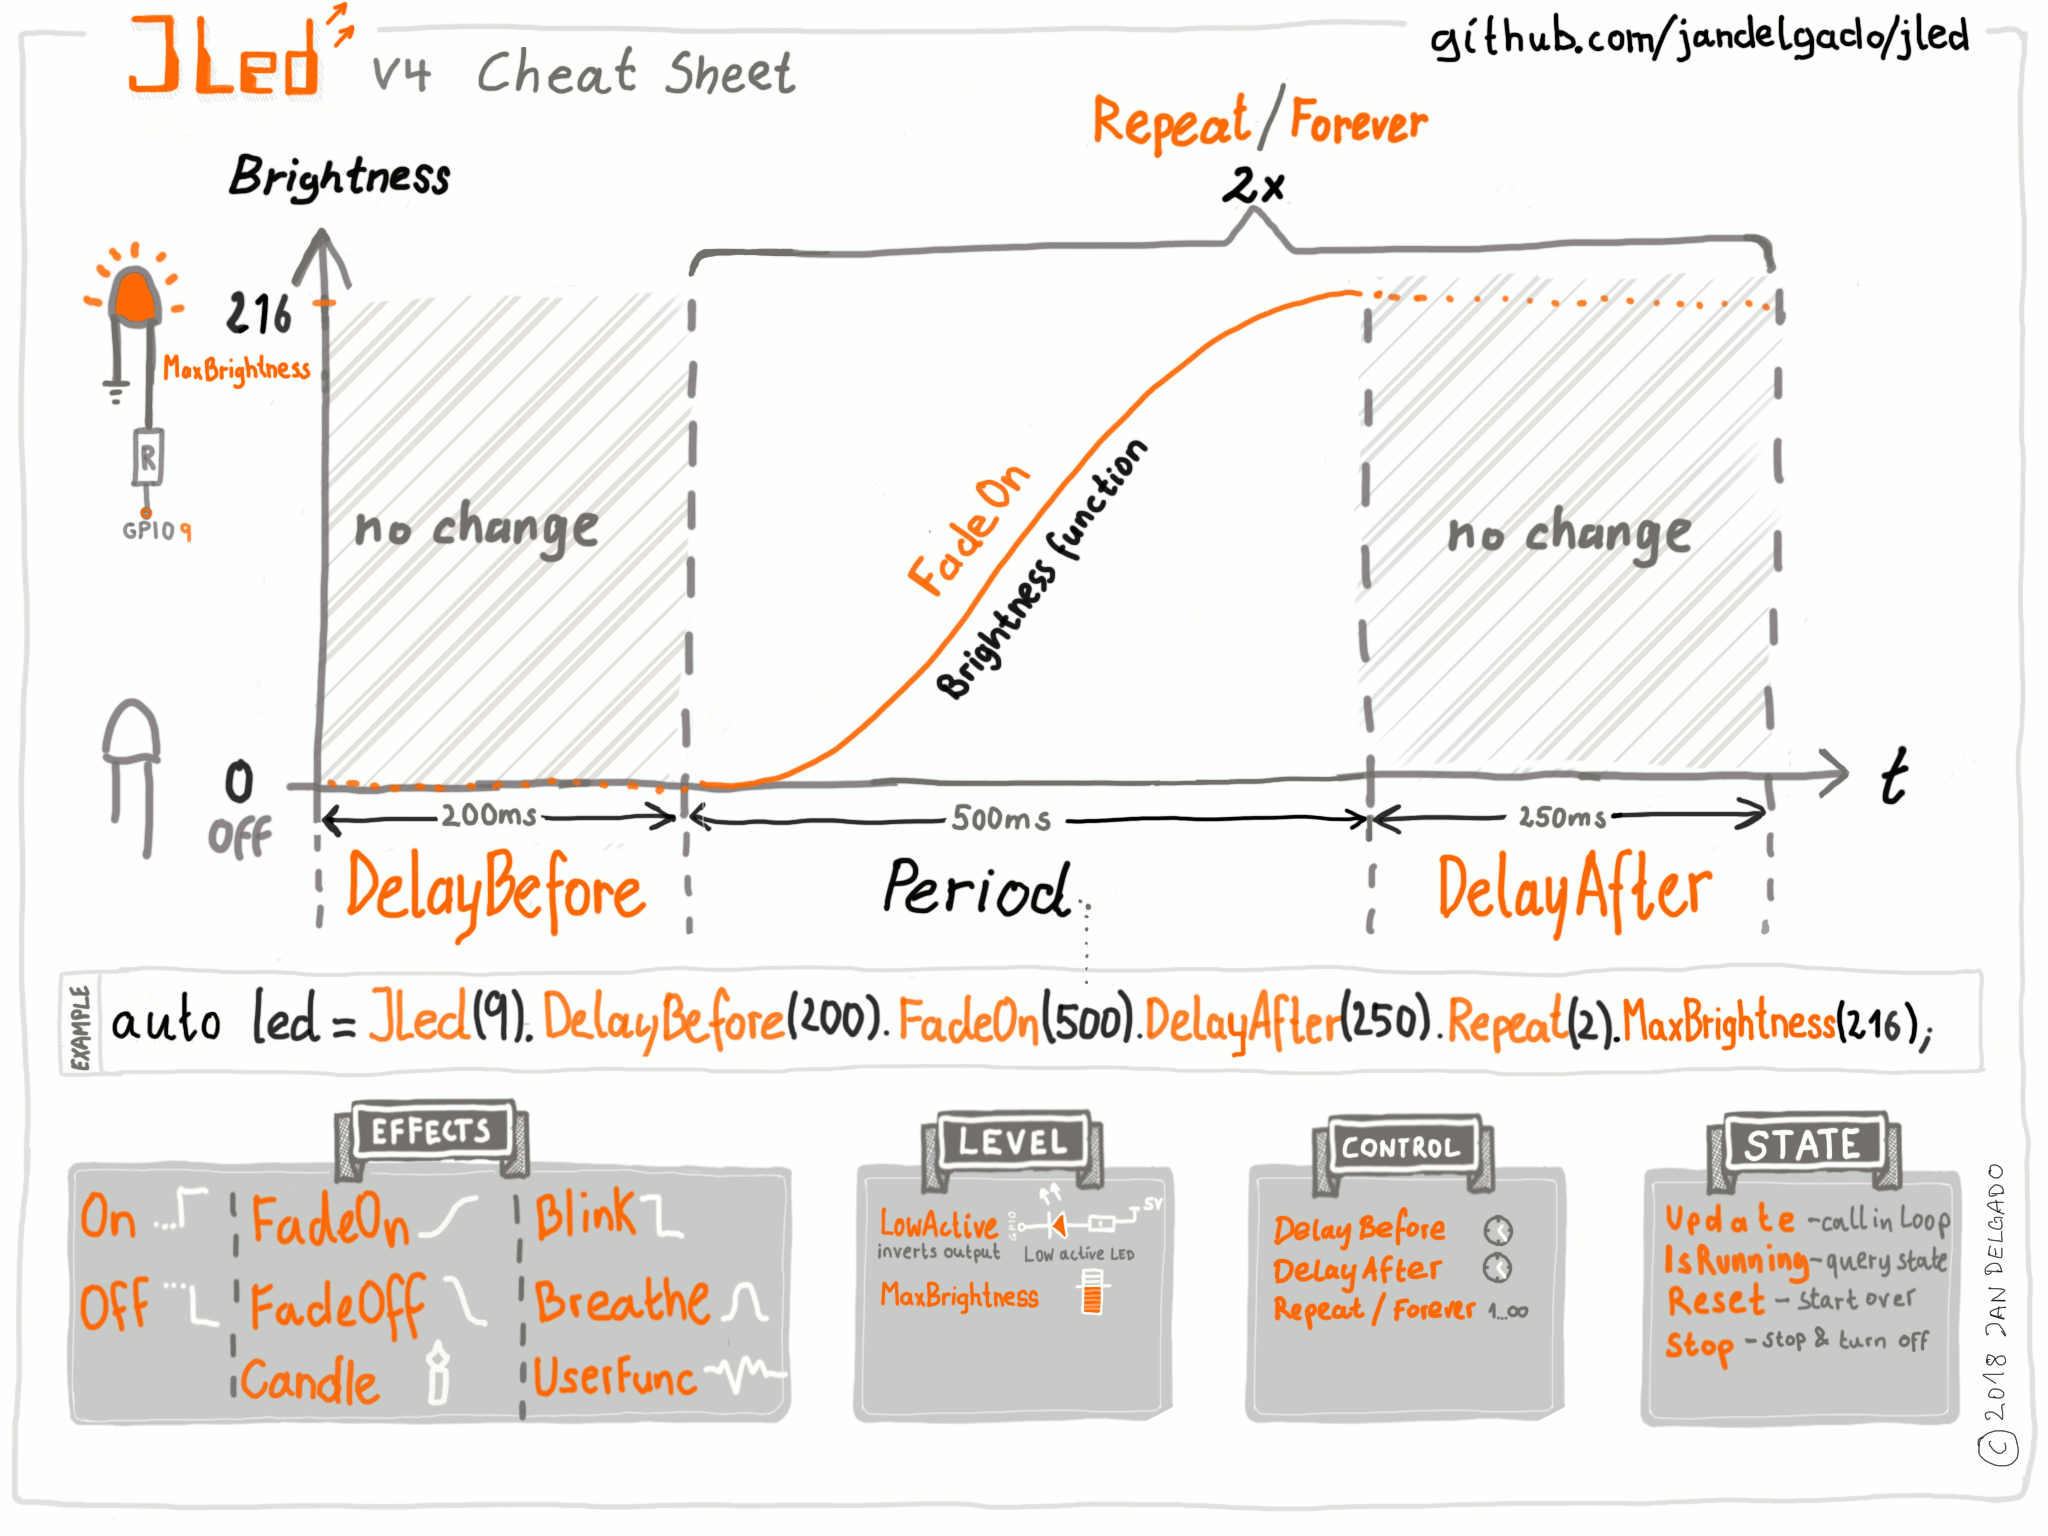 JLed v4 Cheat Sheet
github.com/jandelgado/jled
Repeat/Forever
2x
Brightness
216
MaxBrightness
R
GPIO 9
no change
FadeOn
Brightness function
no change
0
Off
t
200ms
500ms
250ms
DelayBefore
Period
DelayAfter
EXAMPLE
auto led = JLed(9).DelayBefore(200).FadeOn(500).DelayAfter(250).Repeat(2).MaxBrightness(216);
EFFECTS
On
FadeOn
Blink
Off
FadeOff
Breathe
Candle
UserFunc
LEVEL
LowActive
inverts output
GPIO
5V
Low active LED
MaxBrightness
CONTROL
DelayBefore
DelayAfter
Repeat / Forever 1...∞
STATE
Update - call in Loop
IsRunning - query state
Reset - start over
Stop - stop & turn off
© 2018 JAN DELGADO